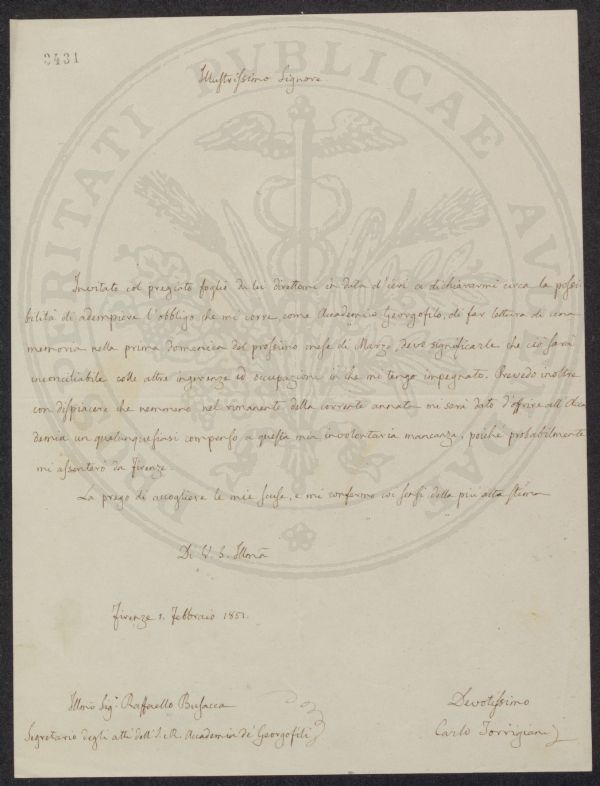 2431
Illustrissimo Signore
Invitato col pregiato foglio di lei direttomi in data d'ieri a dichiararmi circa la possi-
bilità di adempiere l'obbligo che mi corre, come Accademico Georgofilo, di far lettura di una
memoria nella prima domenica del prossimo mese di Marzo, devo significarle che ciò sarà
inconciliabile colle altre ingerenze ed occupazioni in che mi tengo impegnato. Prevedo inoltre
con dispiacere che nemmeno nel rimanente della corrente annata mi sarà dato d'offrire all'Acca-
demia un qualunquesiasi compenso a questa mia involontaria mancanza, poiché probabilmente
mi assenterò da Firenze.
La prego di accogliere le mie scuse, e mi confermo coi sensi della più alta stima
Di V. S. Illma
Firenze 1. Febbraio 1851.
Illmo Sigr. Raffaello Busacca
Segretario degli atti dell'I. e R. Accademia de' Georgofili
Devotissimo
Carlo Torrigiani
PROSPERITATI PUBLICAE AUGENDAE